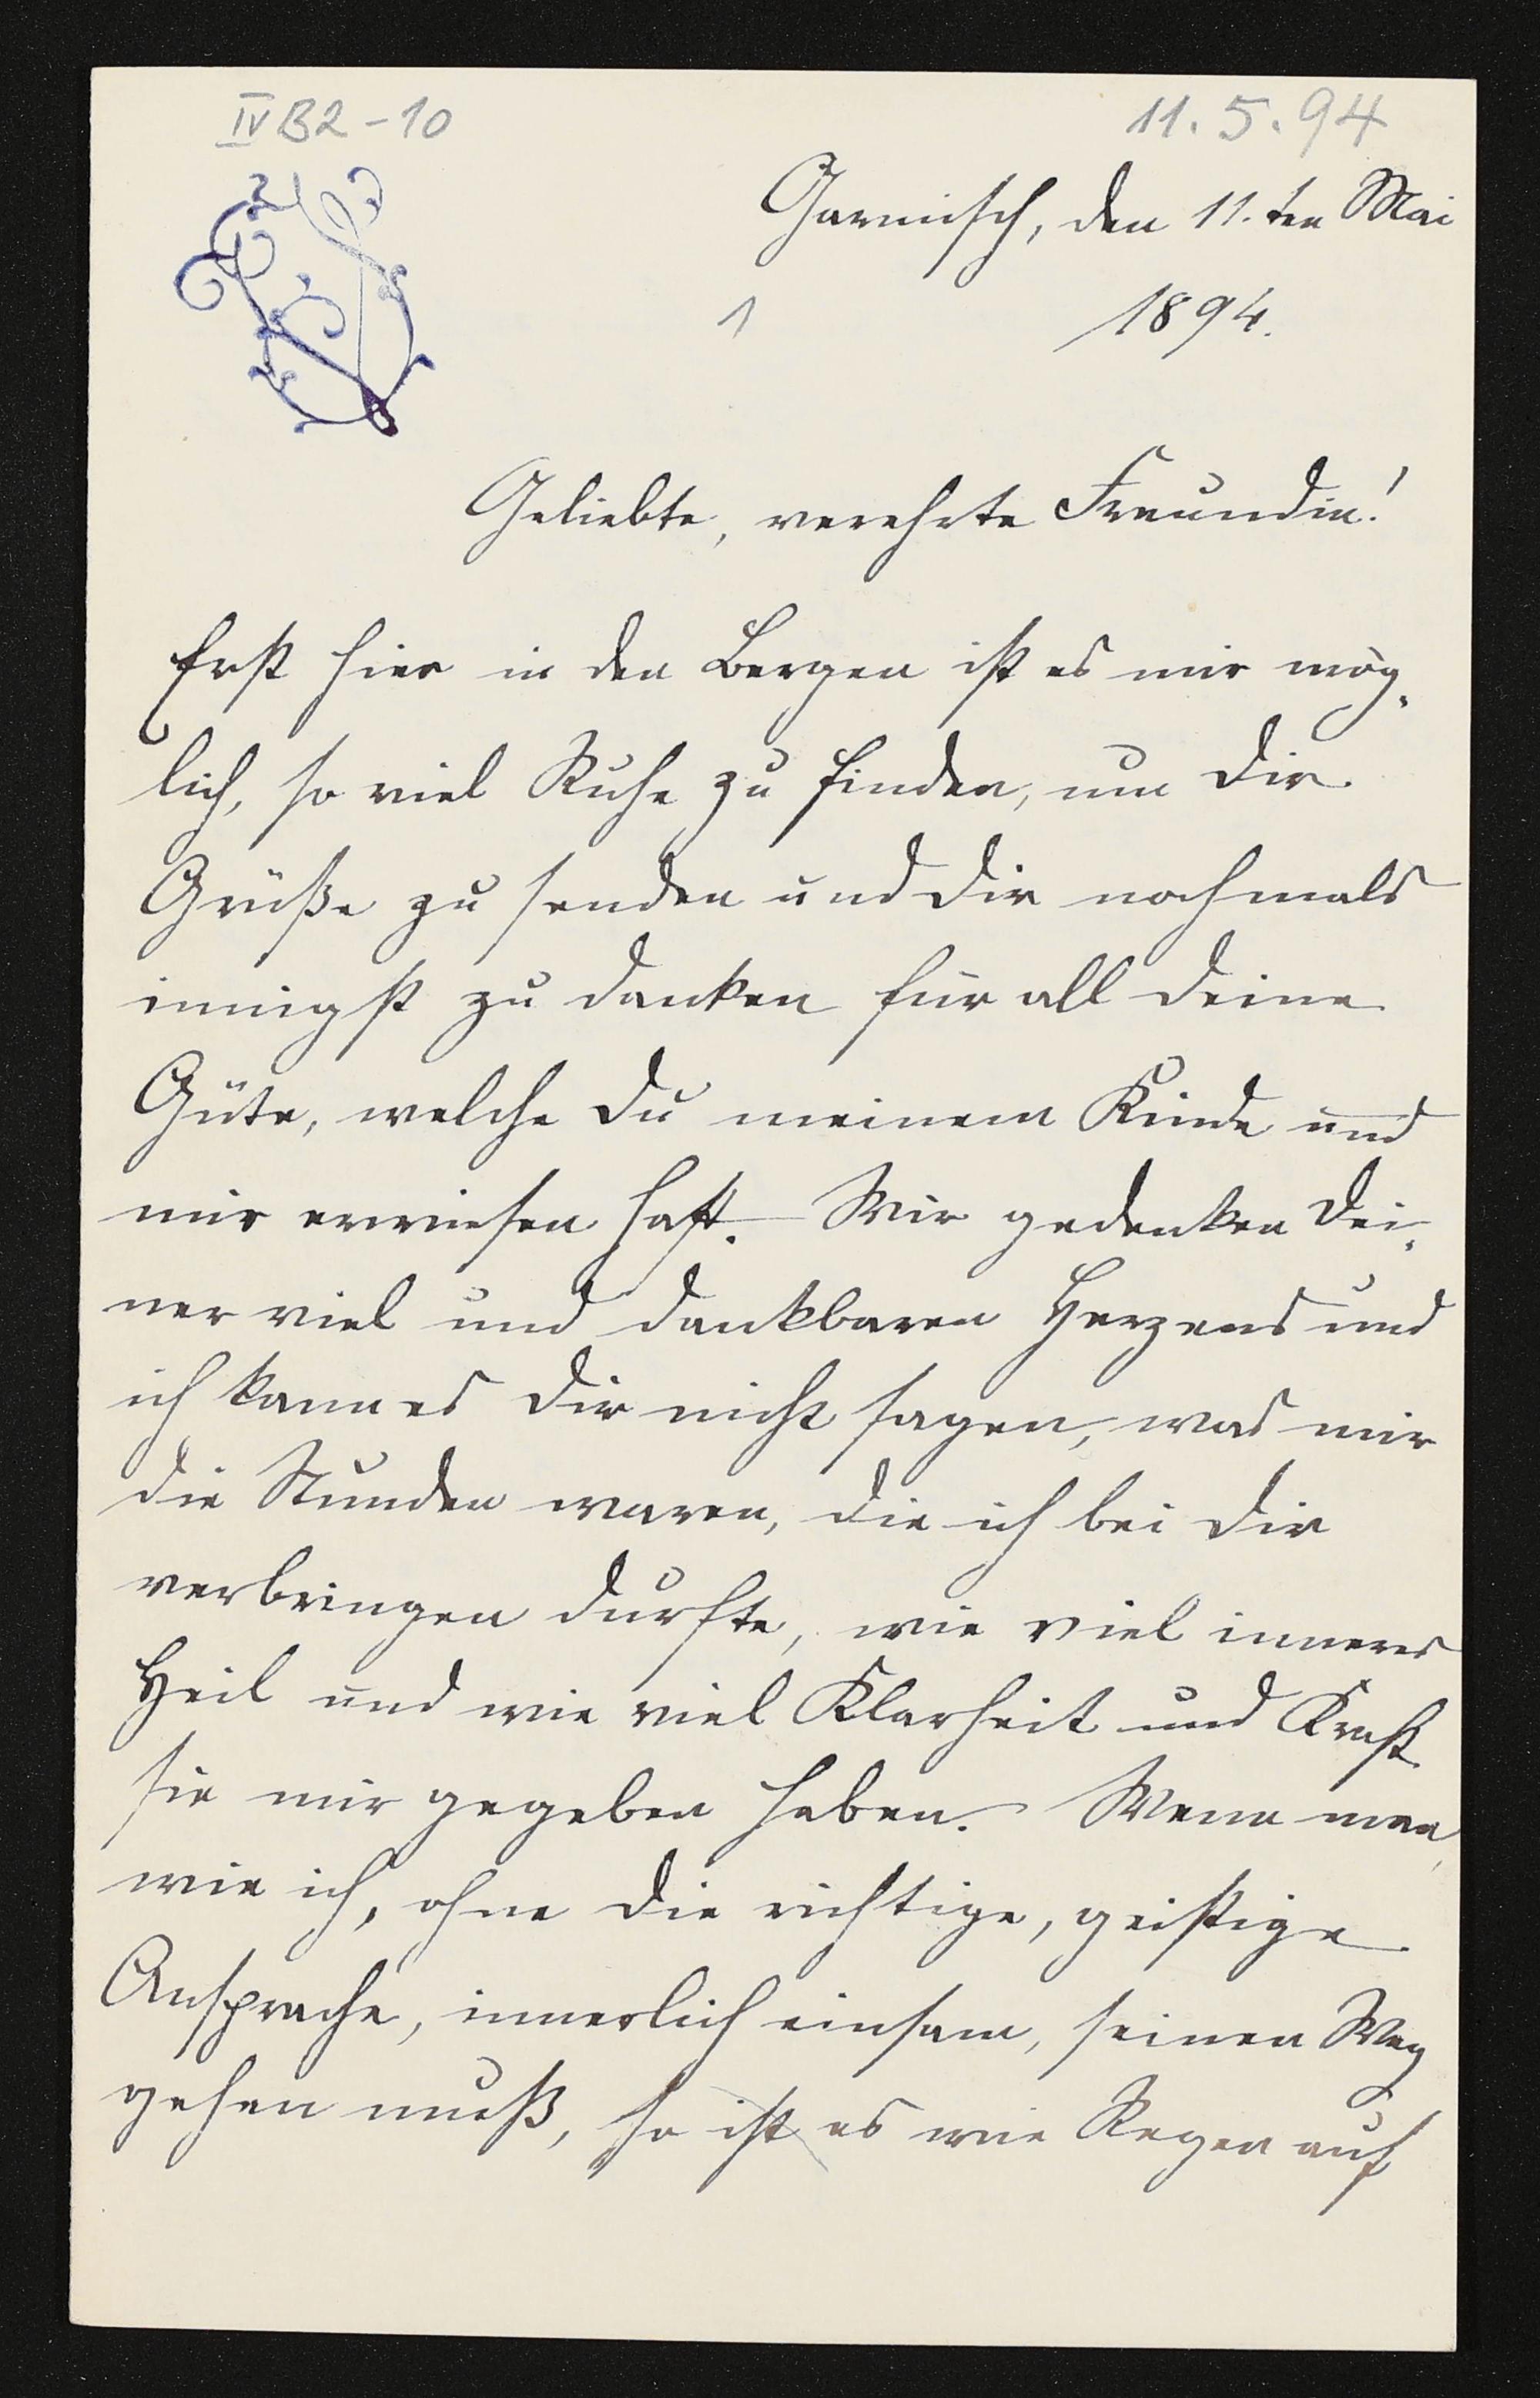 IV B2-10
11.5.94
Garmisch, den 11.ten Mai
1
1894.
Geliebte, verehrte Freundin!
Erst hier in den Bergen ist es mir mög-
lich, so viel Ruhe zu finden, um Dir
Grüße zu senden und Dir nochmals
innigst zu danken für all Deine
Güte, welche Du meinem Kinde und
mir erwiesen hast. – Wir gedenken Dei-
ner viel und dankbaren Herzens und
ich kann es Dir nicht sagen, was mir
die Stunden waren, die ich bei Dir
verbringen durfte, wie viel inneres
Heil und wie viel Klarheit und Kraft
sie mir gegeben haben. – Wenn man,
wie ich, ohne die richtige, geistige
Ansprache, innerlich einsam, seinen Weg
gehen muß, so ist es wie Regen auf